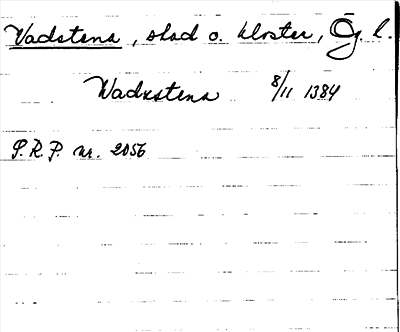 Vadstena, stad o. kloster, Ög. l.
Wadzstena 8/11 1384
S.R.P. nr. 2056